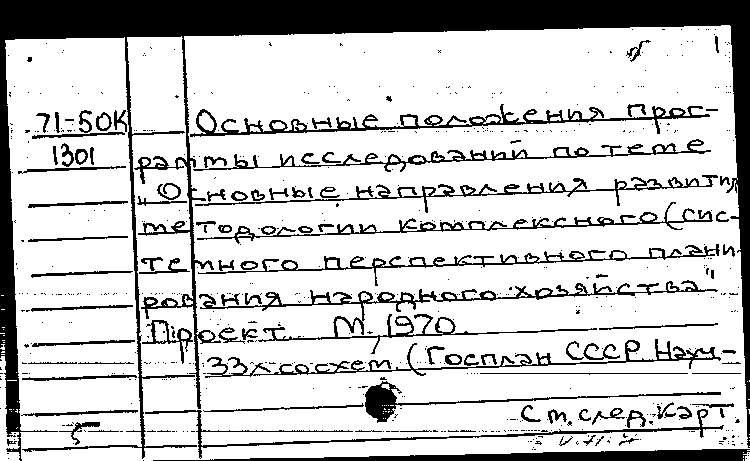 1
71-50К
1301
Основные положения прог-
раммы исследований по теме
„Основные направления развития
методологии комплексного (сис-
темного перспективного плани
рования народного хозяйства"
Проект. М., 1970.
33л. со схем. (Госплан СССР. Науч-
См. след. карт.
5